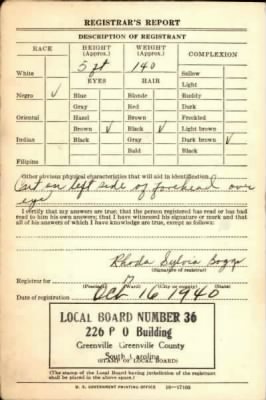 REGISTRAR'S REPORT
DESCRIPTION OF REGISTRANT
RACE HEIGHT (Approx.) WEIGHT (Approx.) COMPLEXION
White 5 ft 140 Sallow
EYES HAIR Light
Negro ✓ Blue Blonde Ruddy
Gray Red Dark
Oriental Hazel Brown Freckled
Brown ✓ Black ✓ Light brown
Indian Black Gray Dark brown ✓
Bald Black
Filipino
Other obvious physical characteristics that will aid in identification
Cut on left side of forehead over
eye
I certify that my answers are true; that the person registered has read or has had
read to him his own answers; that I have witnessed his signature or mark and that
all of his answers of which I have knowledge are true, except as follows:
Rhoda Sylvia
(Signature of registrar)
Registrar for
(Precinct) (Ward) (City or county) (State)
Date of registration Oct 16 1940
LOCAL BOARD NUMBER 36
226 P O Building
Greenville Greenville County
South Carolina
(STAMP OF LOCAL BOARD)
(The stamp of the Local Board having jurisdiction of the registrant
shall be placed in the above space.)
U. S. GOVERNMENT PRINTING OFFICE